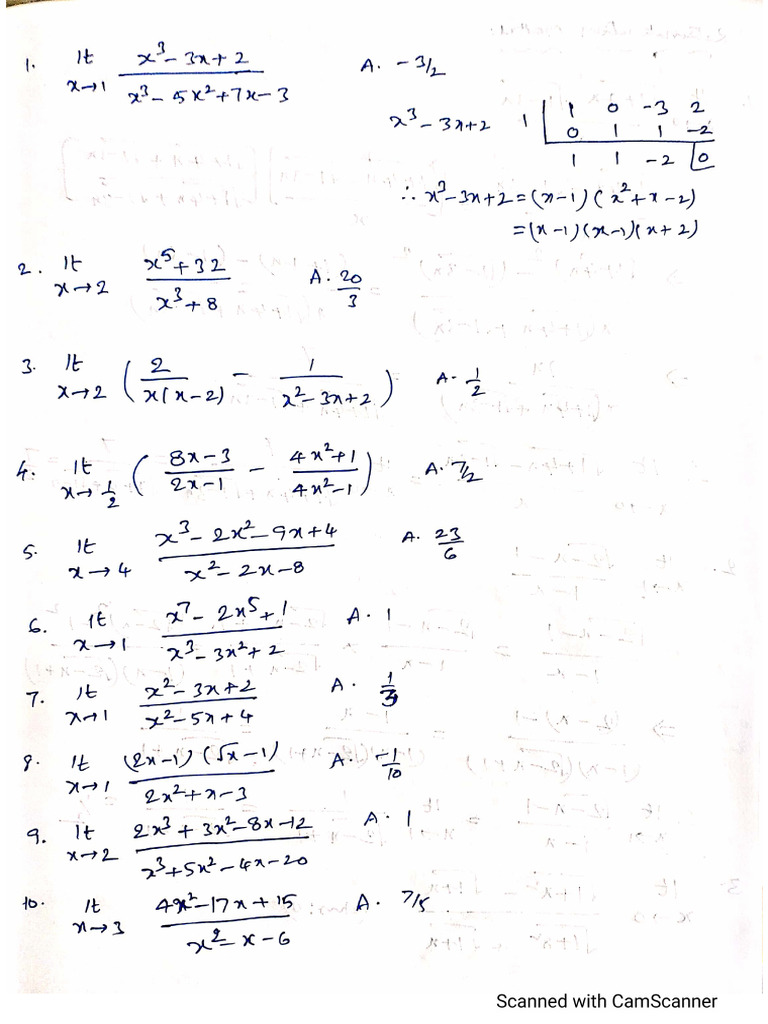 1. lt x→1 (x³ - 3x + 2)/(x³ - 5x² + 7x - 3) A. -3/2
x³ - 3x + 2 1 | 1 0 -3 2
0 1 1 -2
1 1 -2 | 0
∴ x³ - 3x + 2 = (x-1)(x² + x - 2)
= (x-1)(x-1)(x+2)
2. lt x→2 (x⁵ + 32)/(x³ + 8) A. 20/3
3. lt x→2 (2/(x(x-2)) - 1/(x² - 3x + 2)) A. 1/2
4. lt x→1/2 ((8x-3)/(2x-1) - (4x²+1)/(4x²-1)) A. 7/2
5. lt x→4 (x³ - 2x² - 9x + 4)/(x² - 2x - 8) A. 23/6
6. lt x→1 (x⁷ - 2x⁵ + 1)/(x³ - 3x² + 2) A. 1
7. lt x→1 (x² - 3x + 2)/(x² - 5x + 4) A. 1/3
8. lt x→1 (2x-1)(√x - 1)/(2x² + x - 3) A. -1/10
9. lt x→2 (2x³ + 3x² - 8x - 12)/(x³ + 5x² - 4x - 20) A. 1
10. lt x→3 (4x² - 17x + 15)/(x² - x - 6) A. 7/5
Scanned with CamScanner